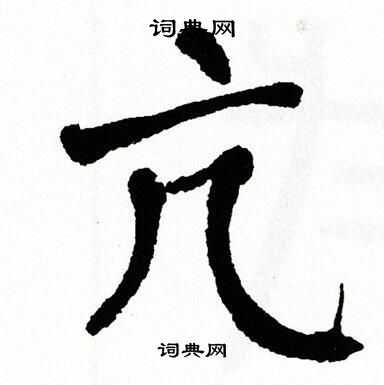 词典网
亢
词典网